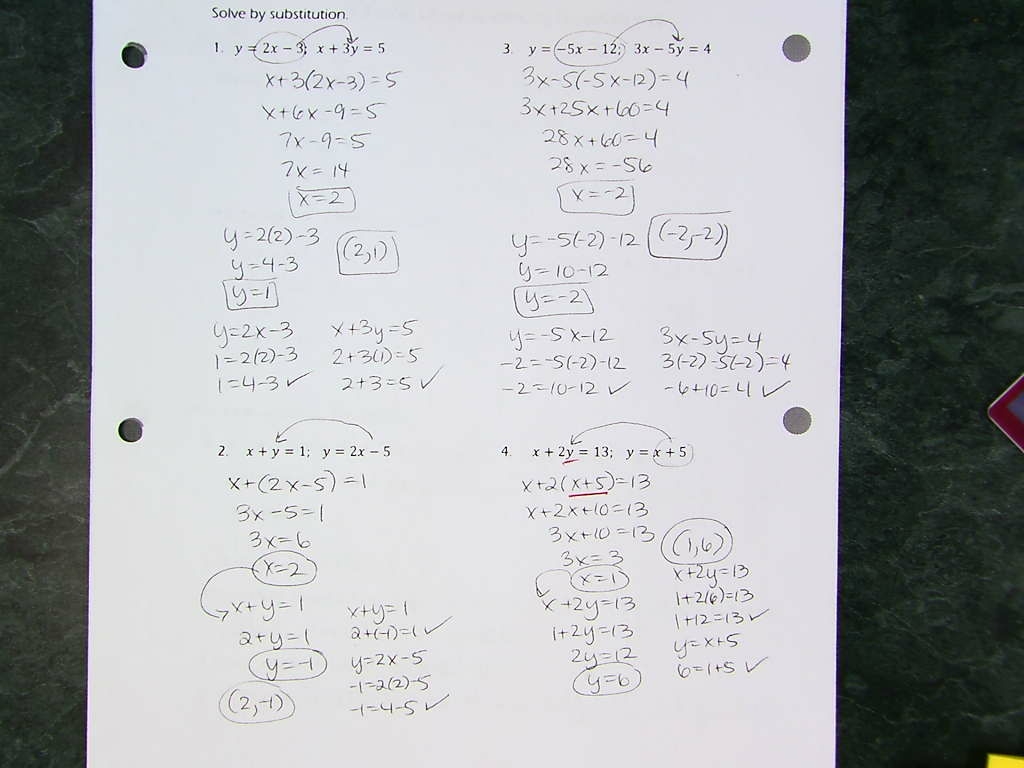 Solve by substitution.
1. y = 2x − 3; x + 3y = 5
x+3(2x-3)=5
x+6x-9=5
7x-9=5
7x=14
x=2
y=2(2)-3
y=4-3
y=1
(2,1)
y=2x-3
1=2(2)-3
1=4-3 ✓
x+3y=5
2+3(1)=5
2+3=5 ✓
2. x + y = 1; y = 2x − 5
x+(2x-5)=1
3x-5=1
3x=6
x=2
x+y=1
2+y=1
y=-1
(2,-1)
x+y=1
2+(-1)=1 ✓
y=2x-5
-1=2(2)-5
-1=4-5 ✓
3. y = −5x − 12; 3x − 5y = 4
3x-5(-5x-12)=4
3x+25x+60=4
28x+60=4
28x=-56
x=-2
y=-5(-2)-12
y=10-12
y=-2
(-2,-2)
y=-5x-12
-2=-5(-2)-12
-2=10-12 ✓
3x-5y=4
3(-2)-5(-2)=4
-6+10=4 ✓
4. x + 2y = 13; y = x + 5
x+2(x+5)=13
x+2x+10=13
3x+10=13
3x=3
x=1
x+2y=13
1+2y=13
2y=12
y=6
(1,6)
x+2y=13
1+2(6)=13
1+12=13 ✓
y=x+5
6=1+5 ✓